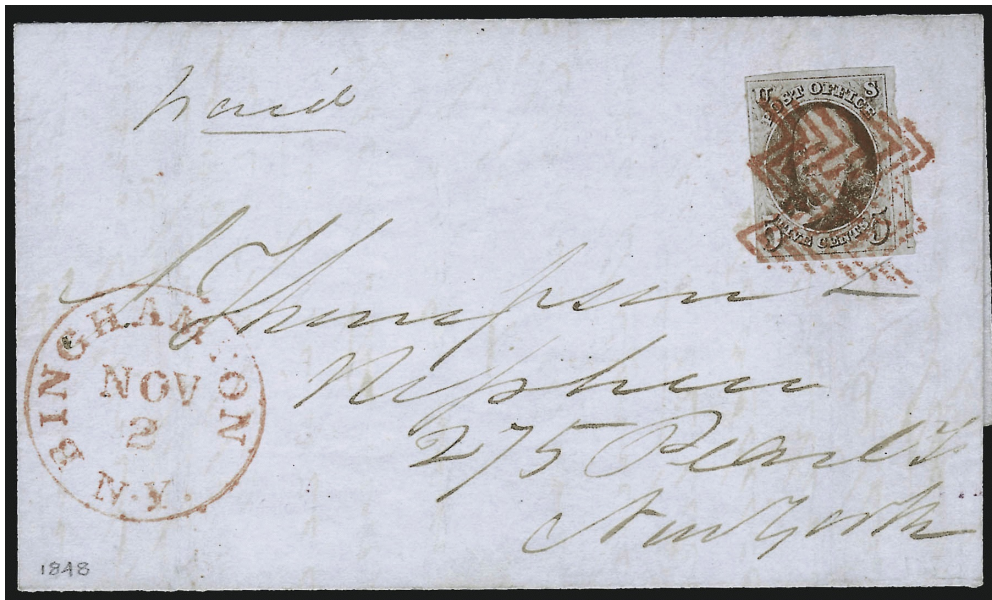 paid
U S
POST OFFICE
5 FIVE CENTS 5
S. Thompson &
Nephew
275 Pearl St
New York
BINGHAMTON
NOV
2
N.Y.
1848